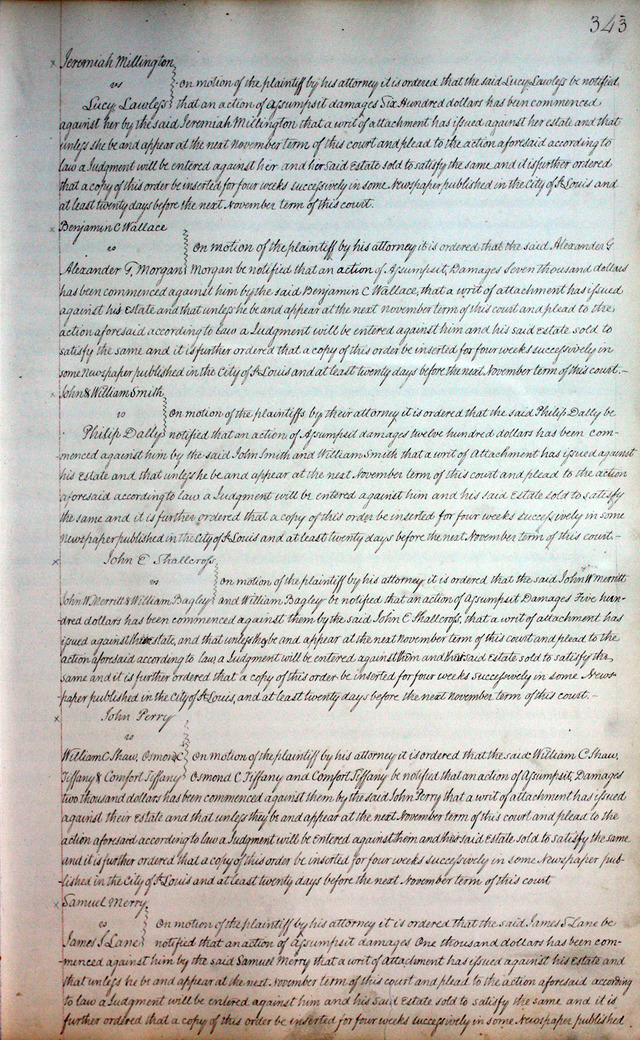 343
Jeremiah Millington
vs on motion of the plaintiff by his attorney it is ordered that the said Lucy Lawless be notified
Lucy Lawless that an action of Assumpsit damages Six Hundred dollars has been commenced
against her by the said Jeremiah Millington that a writ of attachment has issued against her estate and that
unless she be and appear at the next November term of this court and plead to the action aforesaid according to
law a Judgment will be entered against her and her said Estate sold to satisfy the same and it is further ordered
that a copy of this order be inserted for four weeks successively in some Newspaper published in the City of St Louis and
at least twenty days before the next November term of this court.
Benjamin C Wallace
vs On motion of the plaintiff by his attorney it is ordered that the said Alexander G
Alexander G. Morgan Morgan be notified that an action of Assumpsit, Damages Seven thousand dollars
has been commenced against him by the said Benjamin C Wallace, that a writ of attachment has issued
against his Estate and that unless he be and appear at the next November term of this court and plead to the
action aforesaid according to law a Judgment will be entered against him and his said Estate sold to
satisfy the same and it is further ordered that a copy of this order be inserted for four weeks successively in
some Newspaper published in the City of St Louis and at least twenty days before the next November term of this court.—
John & William Smith
vs On motion of the plaintiffs by their attorney it is ordered that the said Philip Dally be
Philip Dally notified that an action of Assumpsit damages twelve hundred dollars has been com-
menced against him by the said John Smith and William Smith that a writ of Attachment has issued against
his Estate and that unless he be and appear at the next November term of this court and plead to the action
aforesaid according to law a Judgment will be entered against him and his said Estate sold to satisfy
the same and it is further ordered that a copy of this order be inserted for four weeks successively in some
Newspaper published in the City of St Louis and at least twenty days before the next November term of this court.—
John E Shallcross
vs on motion of the plaintiff by his attorney it is ordered that the said John W Merritt
John W. Merritt & William Bagley and William Bagley be notified that an action of Assumpsit Damages Five hun-
dred dollars has been commenced against them by the said John E Shallcross, that a writ of attachment has
issued against their estate, and that unless they be and appear at the next November term of this court and plead to the
action aforesaid according to law a Judgment will be entered against them and their said Estate sold to satisfy the
same and it is further ordered that a copy of this order be inserted for four weeks successively in some News-
paper published in the City of St Louis, and at least twenty days before the next November term of this court.—
John Perry
vs
William C Shaw, Osmond C On motion of the plaintiff by his attorney it is ordered that the said William C Shaw,
Tiffany & Comfort Tiffany Osmond C Tiffany and Comfort Tiffany be notified that an action of Assumpsit, Damages
two thousand dollars has been commenced against them by the said John Perry that a writ of attachment has issued
against their Estate and that unless they be and appear at the next November term of this court and plead to the
action aforesaid according to law a Judgment will be entered against them and their said Estate sold to satisfy the same
and it is further ordered that a copy of this order be inserted for four weeks successively in some Newspaper pub-
lished in the City of St Louis and at least twenty days before the next November term of this court
Samuel Merry
vs On motion of the plaintiff by his attorney it is ordered that the said James S Lane be
James S Lane notified that an action of Assumpsit damages One thousand dollars has been com-
menced against him by the said Samuel Merry that a writ of Attachment has issued against his Estate and
that unless he be and appear at the next November term of this court and plead to the action aforesaid according
to law a Judgment will be entered against him and his said Estate sold to satisfy the same and it is
further ordered that a copy of this order be inserted for four weeks successively in some Newspaper published